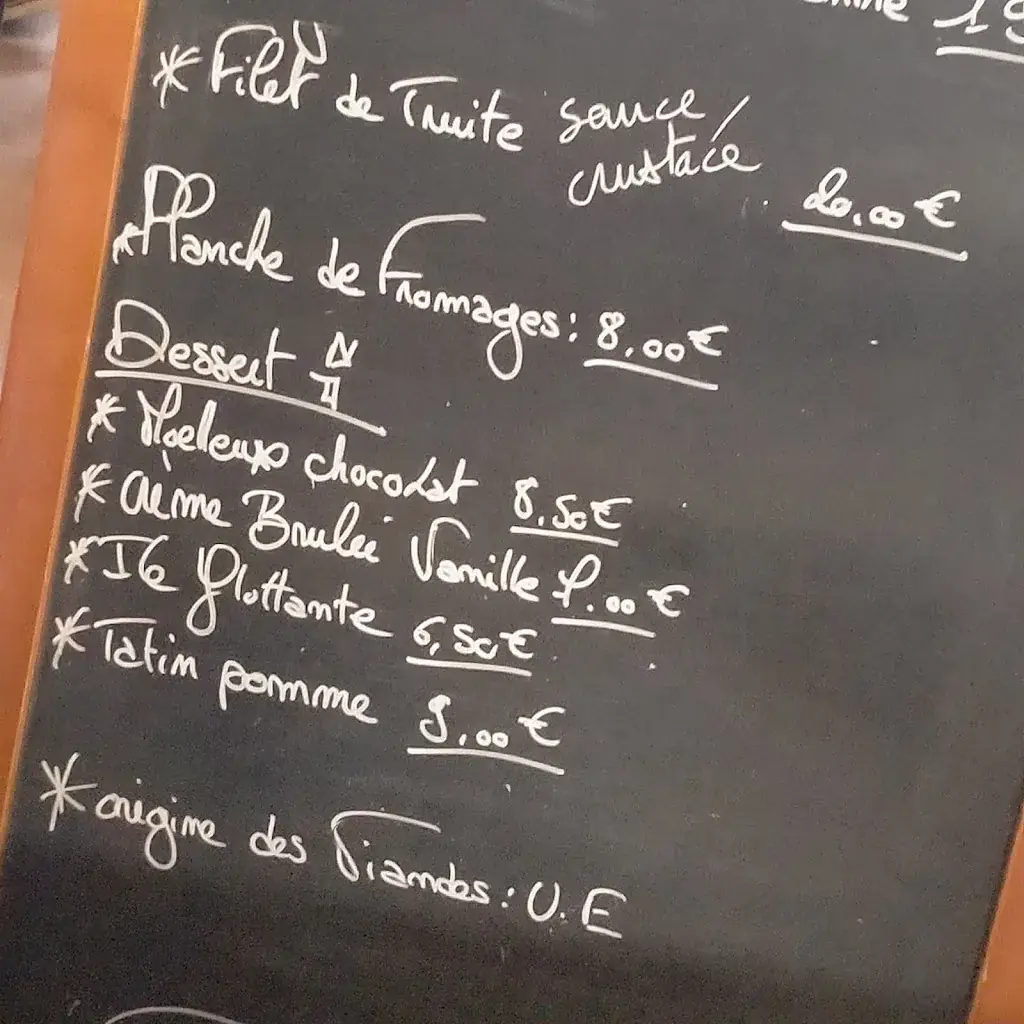 19
* Filet de Truite sauce
crustacé 20,00 €
* Planche de Fromages : 8,00 €
Dessert
* Moeleux chocolat 8,50 €
* Crème Brulée Vanille
* Ile flottante 6,50 €
* Tatin pomme
* origine des Viandes : U.E